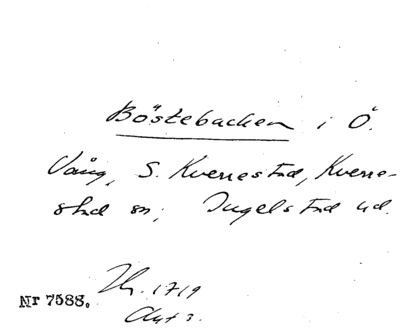 Böstebacken i Ö.
Vång, S. Kverrestad, Kverre-
stad sn; Ingelstad hd.
Nr 7588.
1719